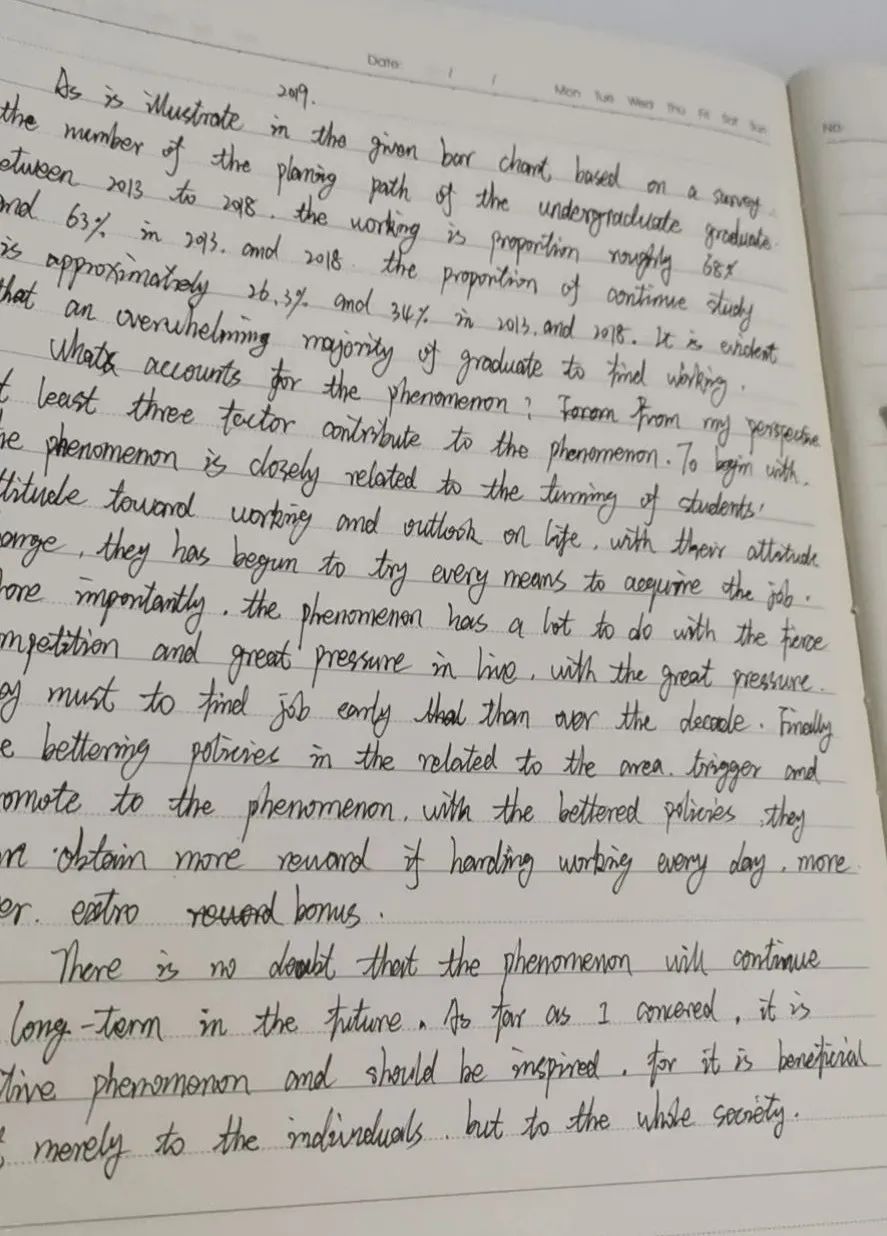 Date: / / Mon Tue Wed Thu Fri Sat Sun
NO.
2019.
As is illustrate in the given bar chart, based on a survey
the number of the planing path of the undergraduate graduate.
etween 2013 to 2018. the working is proportion roughly 68%
nd 63% in 2013. and 2018. the proportion of continue study
is approximately 26.3% and 34% in 2013. and 2018. It is evident
that an overwhelming majority of graduate to find working.
What accounts for the phenomenon? From my perspective
t least three factor contribute to the phenomenon. To begin with.
he phenomenon is closely related to the turning of students'
ttitude toward working and outlook on life. with their attitude
ange, they has begun to try every means to acquire the job.
ore importantly. the phenomenon has a lot to do with the fierce
mpetition and great pressure in live. with the great pressure.
ey must to find job early than over the decade. Finally
e bettering policies in the related to the area. trigger and
omote to the phenomenon. with the bettered policies, they
n obtain more reward if harding working every day. more
er. extro bonus.
There is no doubt that the phenomenon will continue
long-term in the future. As far as I concered, it is
tive phenomenon and should be inspired. for it is beneficial
merely to the individuals. but to the whole society.